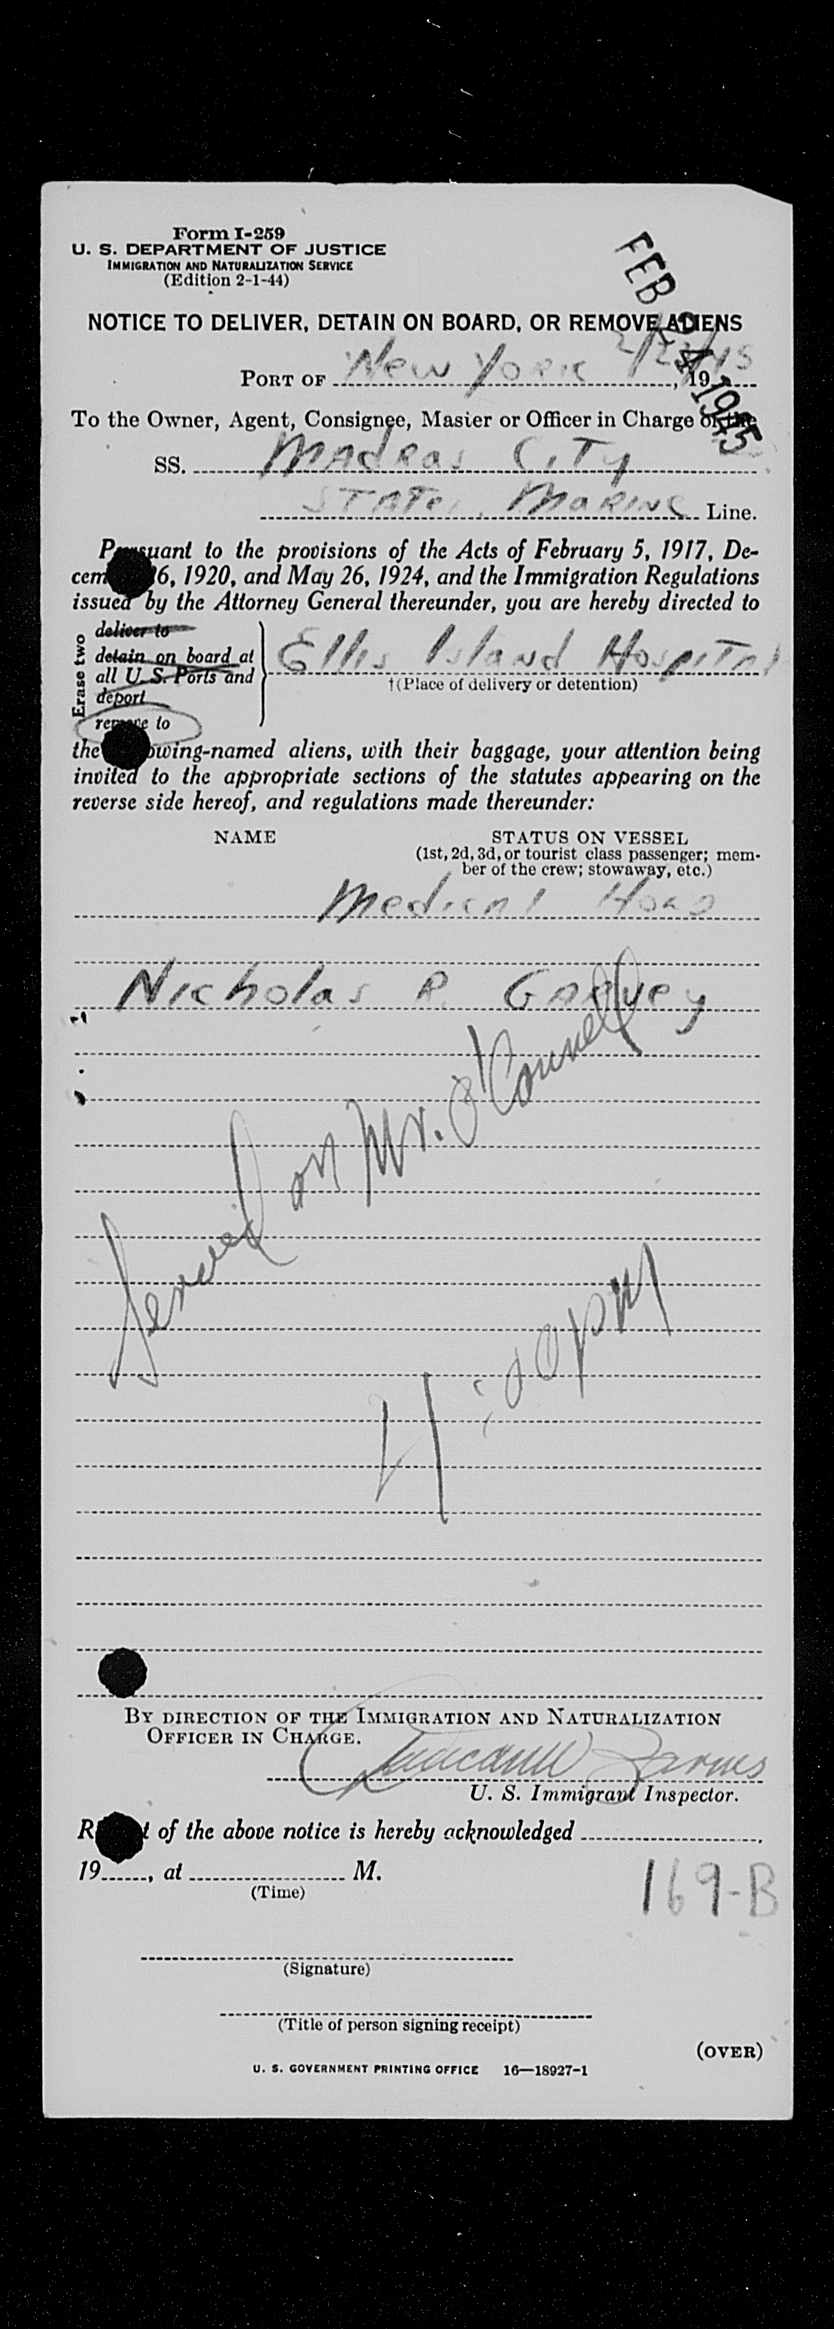 Form I-259
U. S. DEPARTMENT OF JUSTICE
IMMIGRATION AND NATURALIZATION SERVICE
(Edition 2-1-44)
FEB 24 1945
NOTICE TO DELIVER, DETAIN ON BOARD, OR REMOVE ALIENS
PORT OF New York 2/23/45, 19
To the Owner, Agent, Consignee, Master or Officer in Charge of the
SS. Madras City
States Marine Line.
Pursuant to the provisions of the Acts of February 5, 1917, De-
cem 6, 1920, and May 26, 1924, and the Immigration Regulations
issued by the Attorney General thereunder, you are hereby directed to
Erase two
deliver to
detain on board at
all U. S. Ports and
deport
remove to
Ellis Island Hospital
†(Place of delivery or detention)
the owing-named aliens, with their baggage, your attention being
invited to the appropriate sections of the statutes appearing on the
reverse side hereof, and regulations made thereunder:
NAME STATUS ON VESSEL
(1st, 2d, 3d, or tourist class passenger; mem-
ber of the crew; stowaway, etc.)
Medical Hold
Nicholas R. Garvey
Served on Mr. O'Connell
4:00pm
BY DIRECTION OF THE IMMIGRATION AND NATURALIZATION
OFFICER IN CHARGE.
Barnes
U. S. Immigrant Inspector.
R t of the above notice is hereby acknowledged ,
19 , at M.
(Time)
169-B
(Signature)
(Title of person signing receipt)
(OVER)
U. S. GOVERNMENT PRINTING OFFICE 16—18927-1